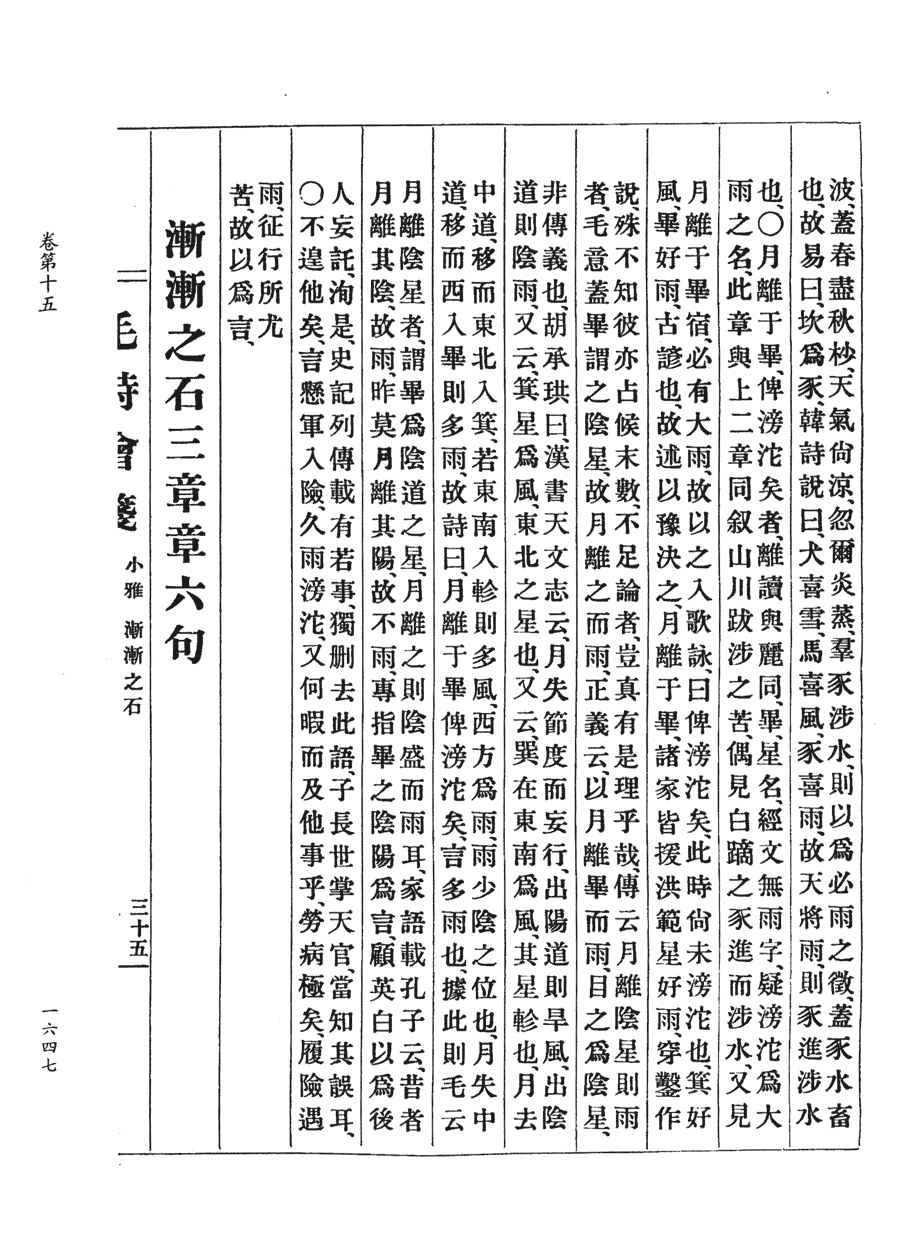 波、蓋春盡秋杪、天氣尙涼、忽爾炎蒸、羣豕涉水、則以爲必雨之徵、蓋豕水畜
也、故易曰、坎爲豕、韓詩說曰、犬喜雪、馬喜風、豕喜雨、故天將雨、則豕進涉水
也、〇月離于畢、俾滂沱矣者、離讀與麗同、畢、星名、經文無雨字、疑滂沱爲大
雨之名、此章與上二章同叙山川跋涉之苦、偶見白蹢之豕進而涉水、又見
月離于畢宿、必有大雨、故以之入歌詠、曰俾滂沱矣、此時尙未滂沱也、箕好
風、畢好雨、古諺也、故述以豫決之、月離于畢、諸家皆援洪範星好雨、穿鑿作
說、殊不知彼亦占候末數、不足論者、豈真有是理乎哉、傳云月離陰星則雨
者、毛意蓋畢謂之陰星、故月離之而雨、正義云、以月離畢而雨、目之爲陰星、
非傳義也、胡承珙曰、漢書天文志云、月失節度而妄行、出陽道則旱風、出陰
道則陰雨、又云、箕星爲風、東北之星也、又云、巽在東南爲風、其星軫也、月去
中道、移而東北入箕、若東南入軫則多風、西方爲雨、雨少陰之位也、月失中
道、移而西入畢則多雨、故詩曰、月離于畢俾滂沱矣、言多雨也、據此則毛云
月離陰星者、謂畢爲陰道之星、月離之則陰盛而雨耳、家語載孔子云、昔者
月離其陰、故雨、昨莫月離其陽、故不雨、專指畢之陰陽爲言、顧英白以爲後
人妄託、洵是、史記列傳載有若事、獨刪去此語、子長世掌天官、當知其誤耳、
〇不遑他矣、言懸軍入險、久雨滂沱、又何暇而及他事乎、勞病極矣、履險遇
雨、征行所尤
苦、故以爲言、
漸漸之石三章章六句
毛詩會箋 小雅 漸漸之石 三十五
卷第十五
一六四七